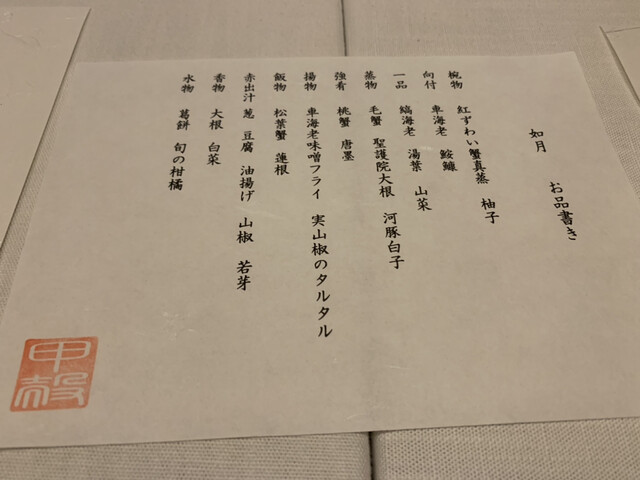 如月　お品書き
椀物　紅ずわい蟹真蒸　柚子
向付　車海老　鮟鱇
一品　縞海老　湯葉　山菜
蒸物　毛蟹　聖護院大根　河豚白子
強肴　桃蟹　唐墨
揚物　車海老味噌フライ　実山椒のタルタル
飯物　松葉蟹　蓮根
赤出汁　葱　豆腐　油揚げ　山椒　若芽
香物　大根　白菜
水物　葛餅　旬の柑橘
甲殻